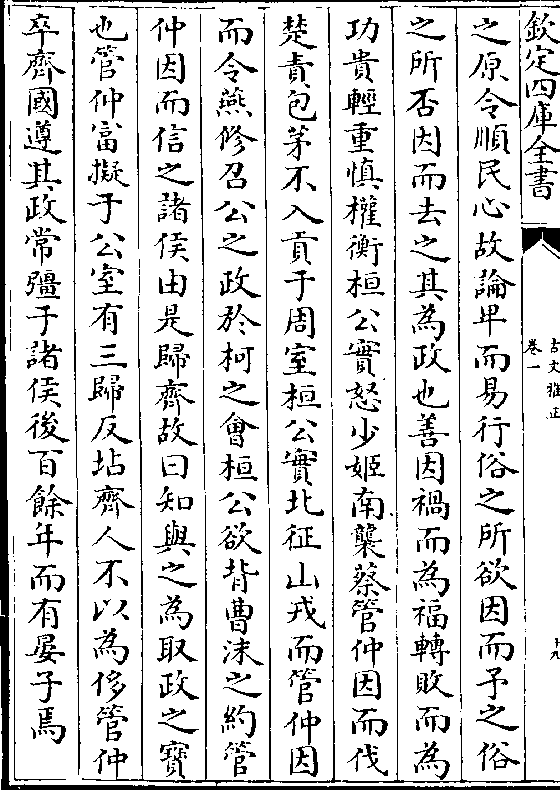 欽定四庫全書
古文雅正
卷一
十九
之原令順民心故論卑而易行俗之所欲因而予之俗
之所否因而去之其為政也善因禍而為福轉敗而為
功貴輕重慎權衡桓公實怒少姬南襲蔡管仲因而伐
楚責包茅不入貢于周室桓公實北征山戎而管仲因
而令燕修召公之政於柯之會桓公欲背曹沫之約管
仲因而信之諸侯由是歸齊故曰知與之為取政之寶
也管仲富擬于公室有三歸反坫齊人不以為侈管仲
卒齊國遵其政常彊于諸侯後百餘年而有晏子焉